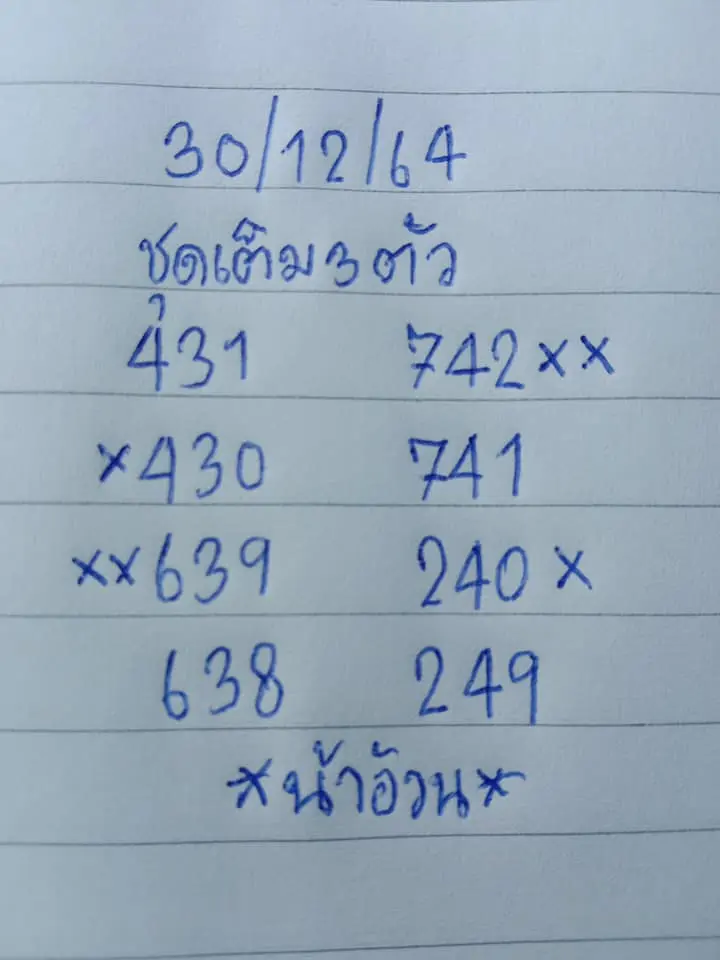 30/12/64
ชุดเต็ม3ตัว
431 742xx
x430 741
xx639 240x
638 249
*น้าอ้วน*